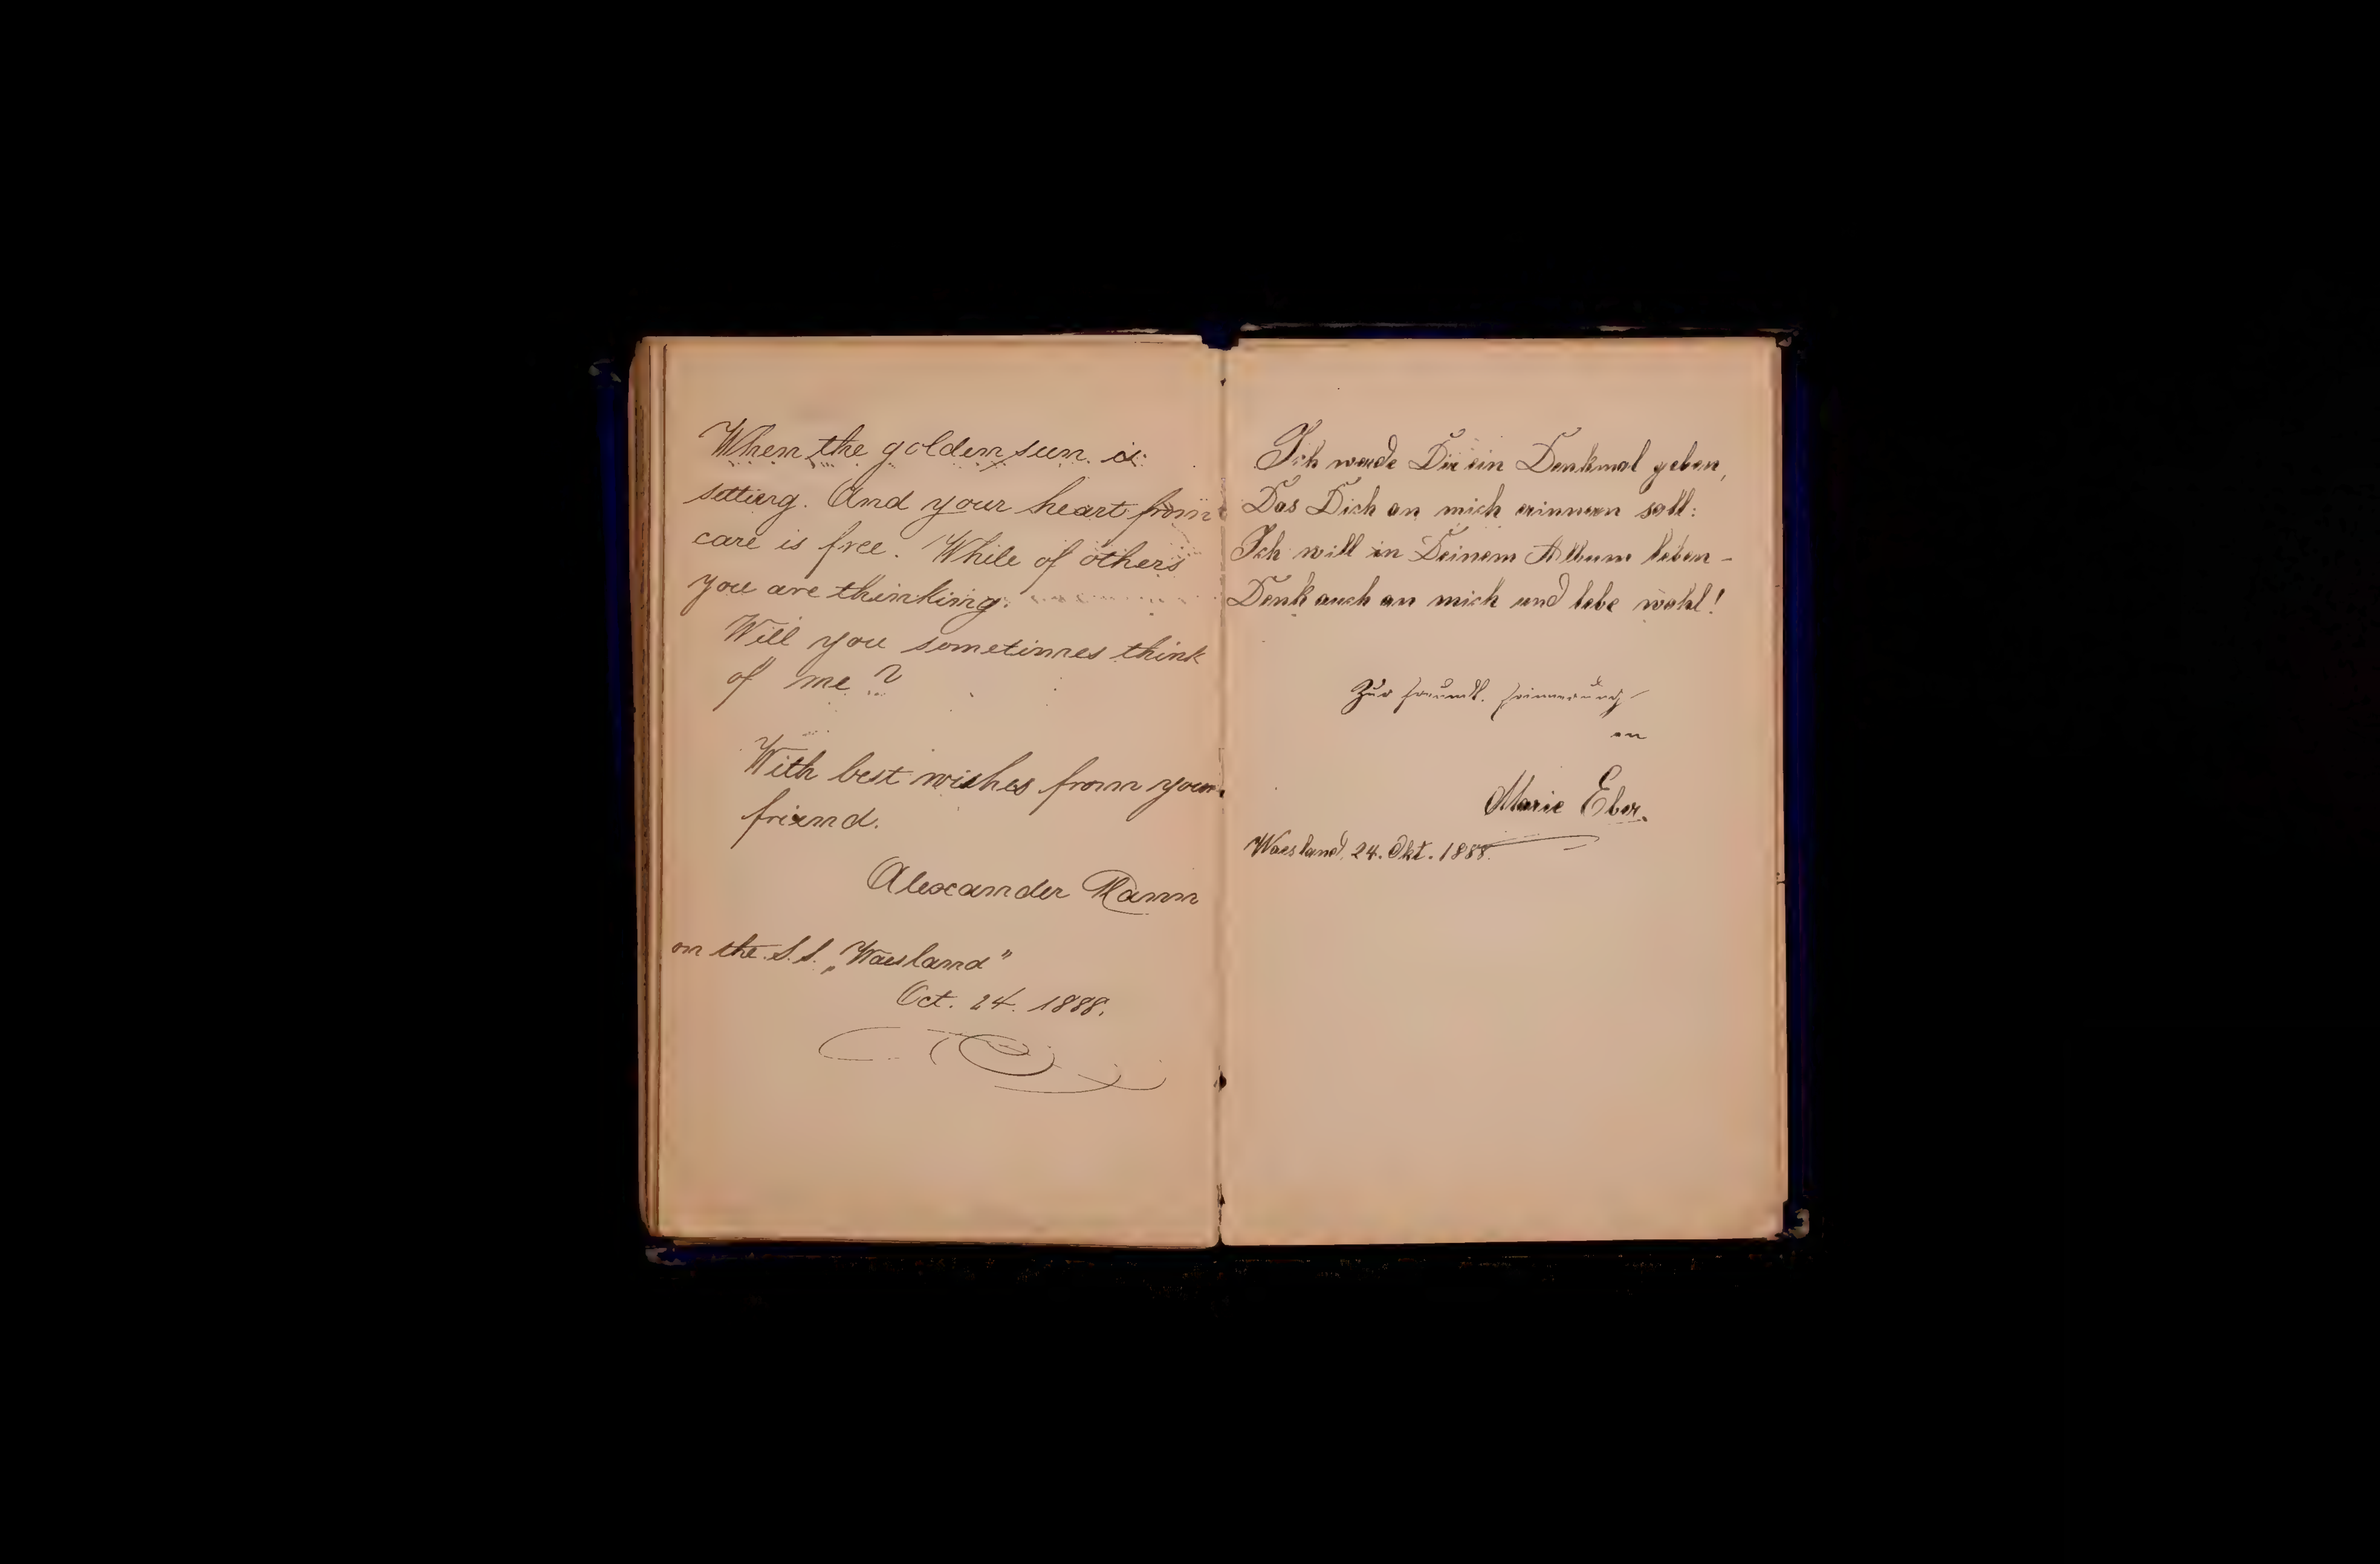 When the golden sun is
setting. And your heart from
care is free. While of others
you are thinking.
Will you sometimes think
of me?
With best wishes from your
friend.
Alexander Mann
on the S.S. „Waesland"
Oct. 24. 1888.
Ich werde Dir ein Denkmal geben,
Das Dich an mich erinnern soll:
Ich will in Deinem Album leben –
Denk auch an mich und lebe wohl!
Zur freundl. Erinnerung
an
Marie Eber.
Waesland, 24. Okt. 1888.